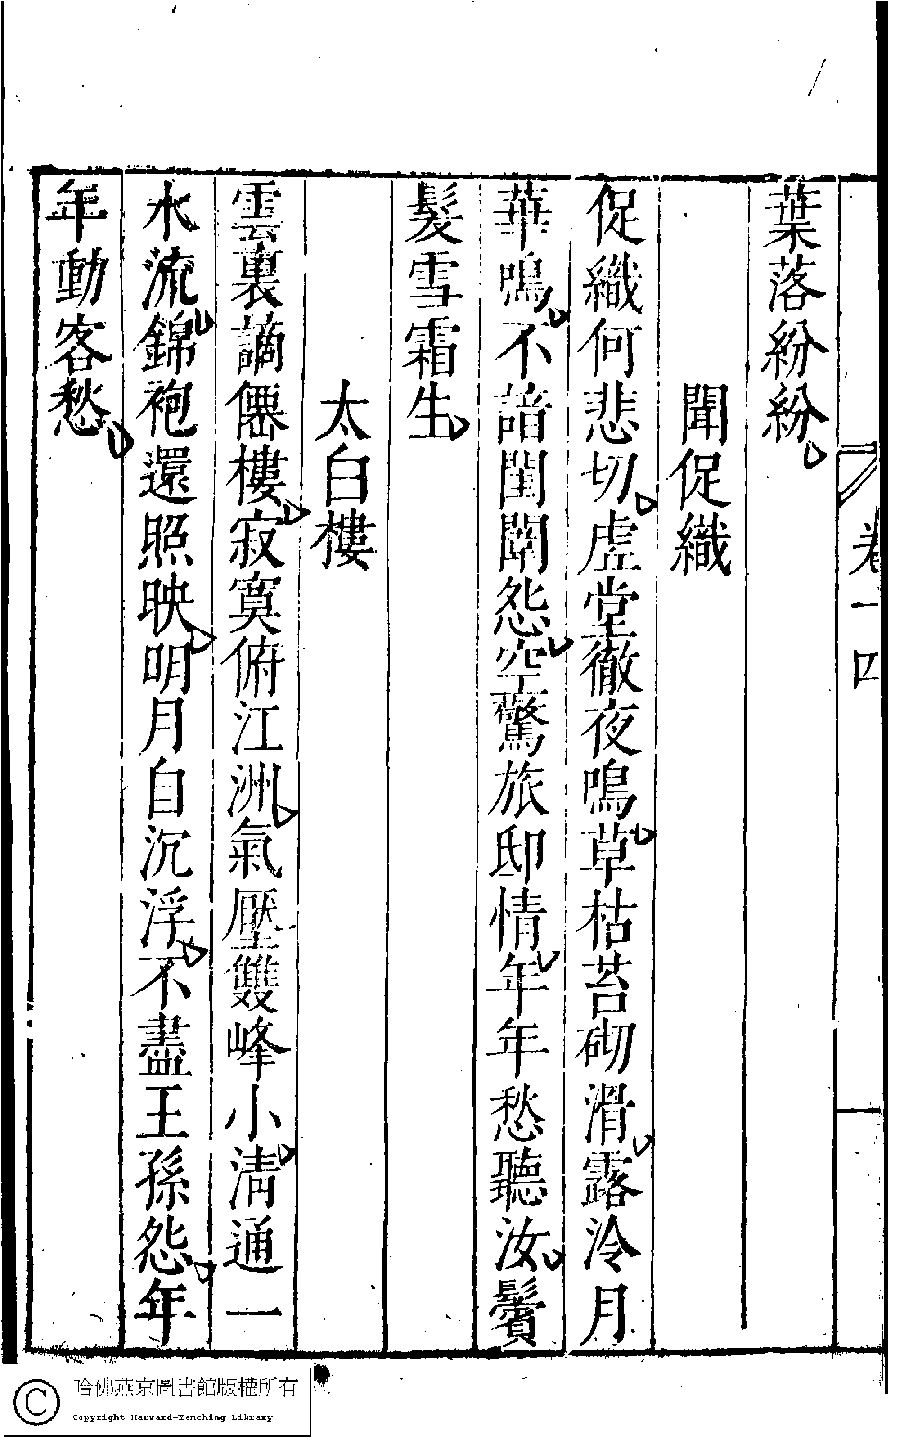 葉落紛紛
聞促織
促織何悲切虛堂徹夜鳴草枯苔砌滑露泠月
華鳴不諳閨闈怨空驚旅邸情年年愁聽汝鬢
髮雪霜生
太白樓
雲裏謫僊樓寂寞俯江洲氣壓雙峰小淸通一
水流錦袍還照映明月自沉浮不盡王孫怨年
年動客愁
卷十四
哈佛燕京圖書館版權所有
Copyright Harvard-Yenching Library